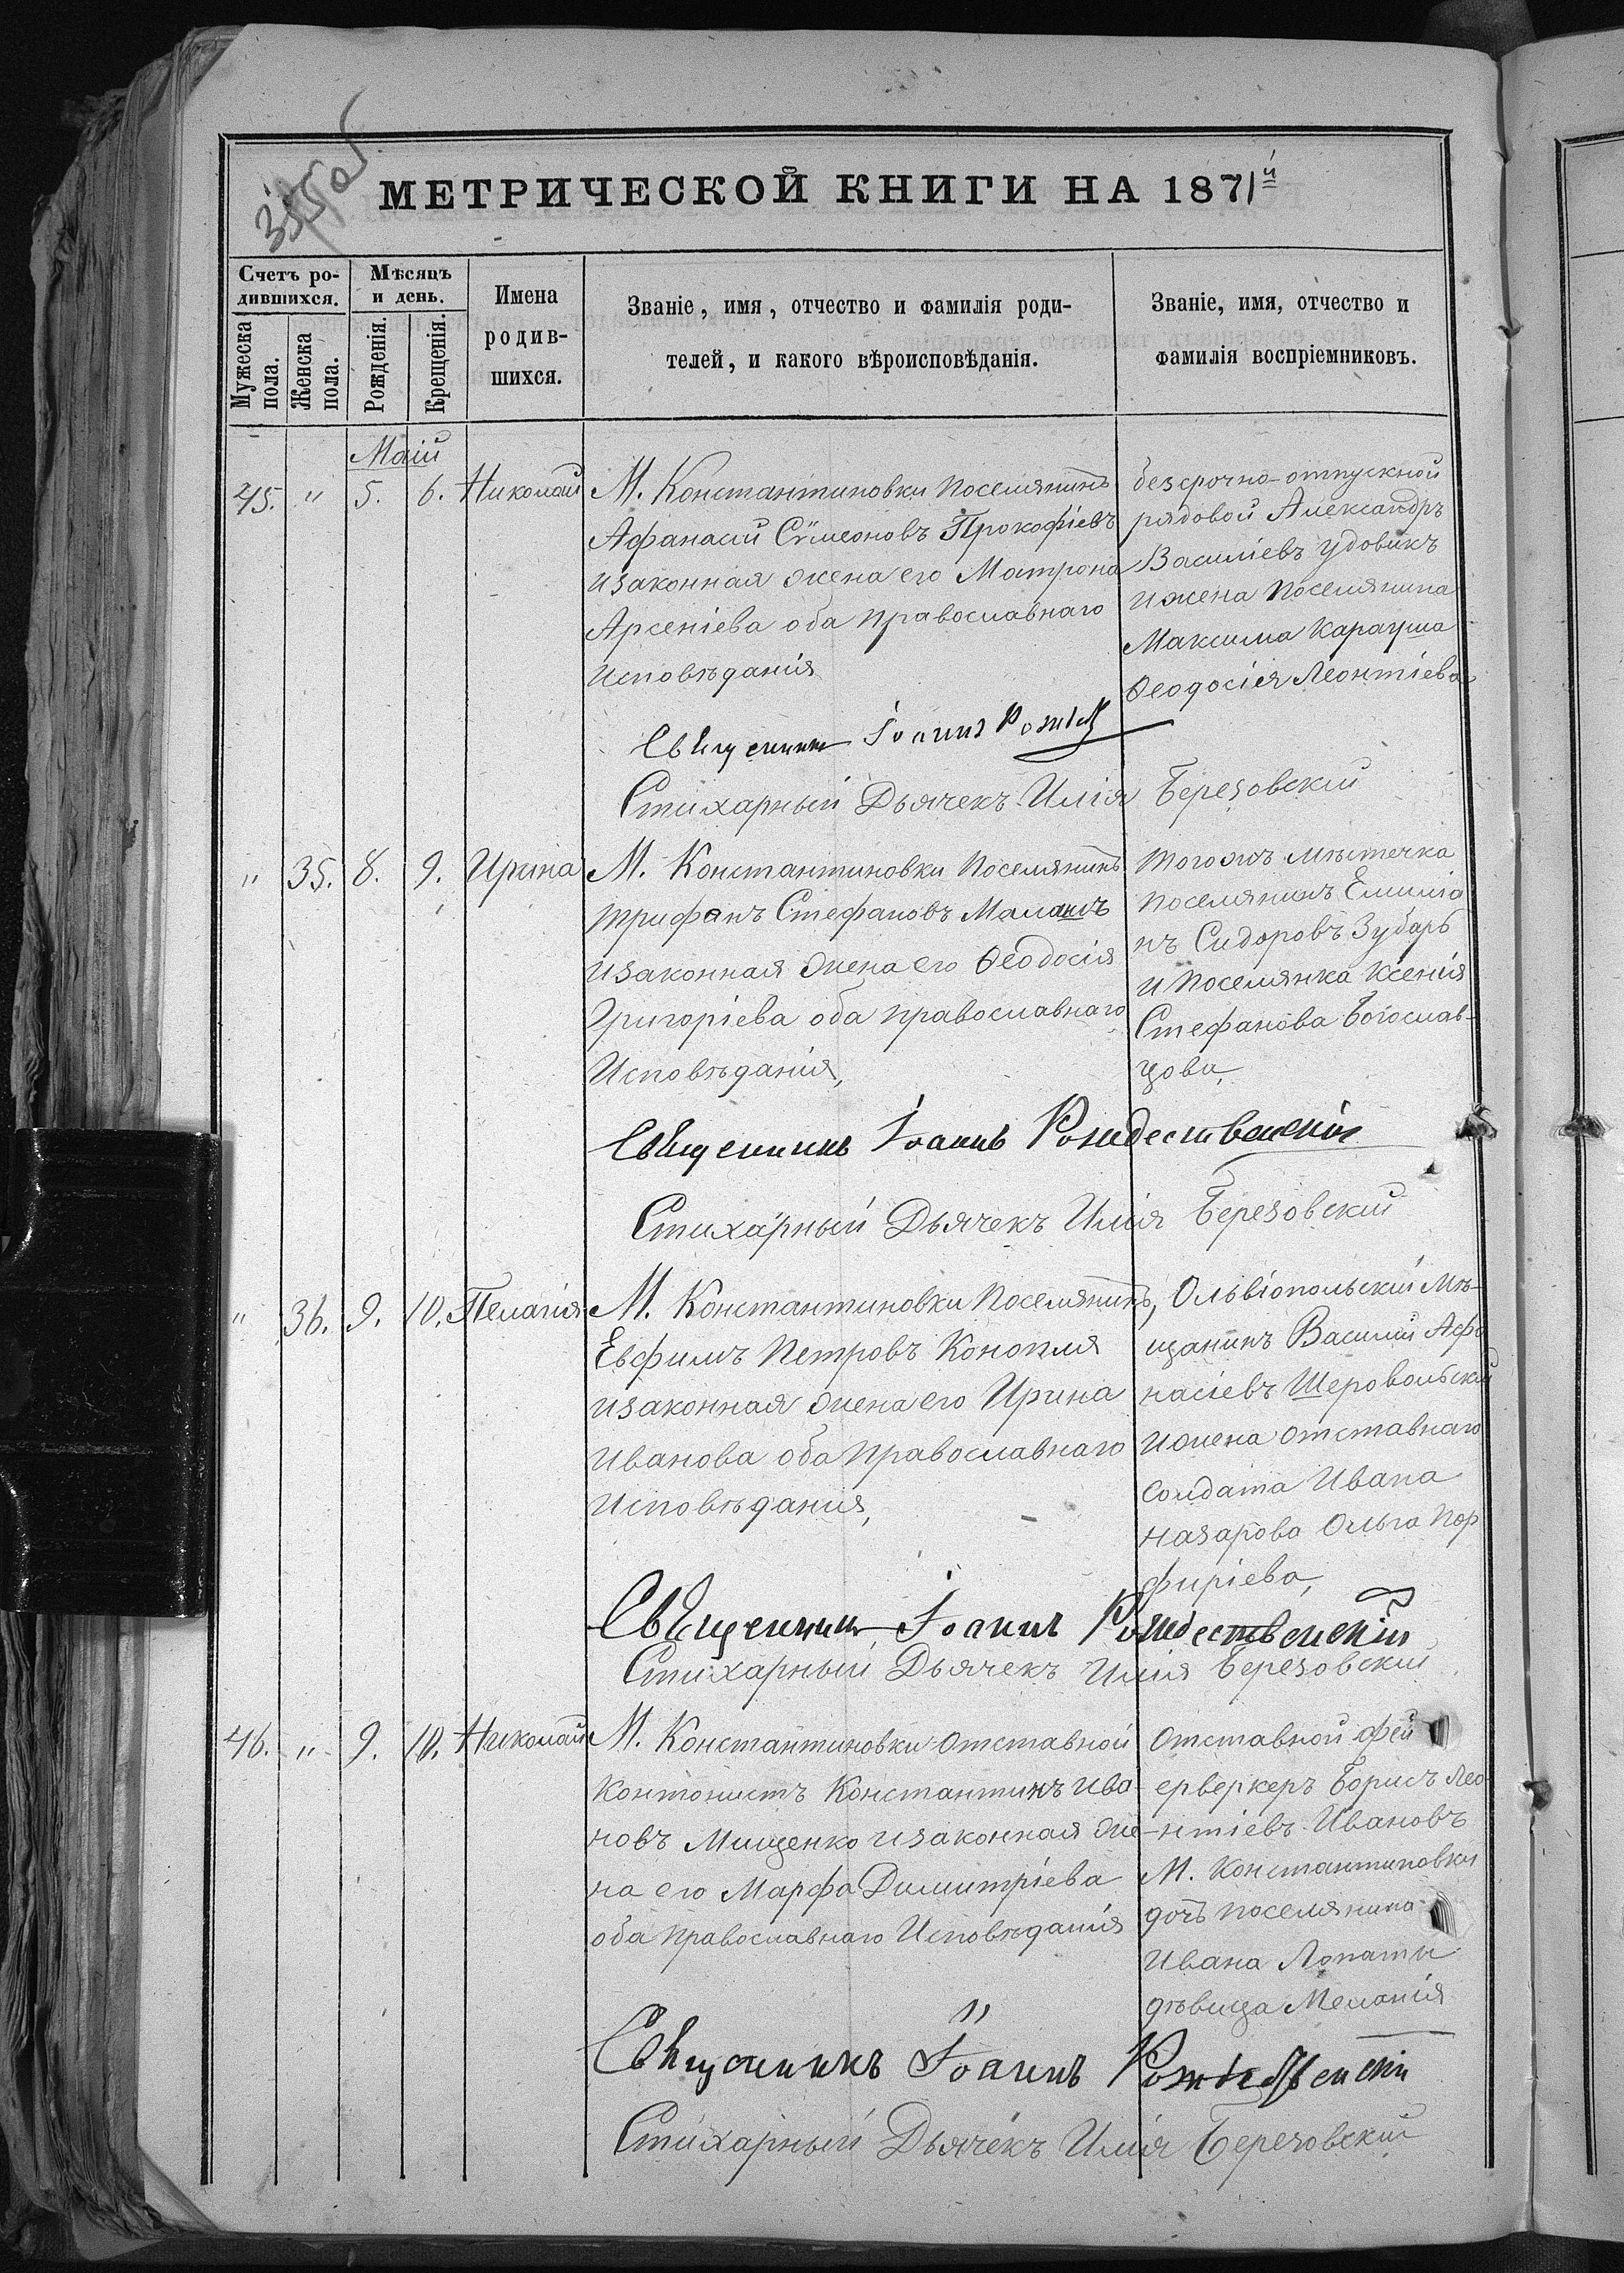 355 об.
МЕТРИЧЕСКОЙ КНИГИ НА 1871й
Счетъ ро-
дившихся.
Мужеска пола.
Женска пола.
Мѣсяцъ
и день.
Рожденія.
Крещенія.
Имена
родив-
шихся.
Званіе, имя, отчество и фамилія роди-
телей, и какого вѣроисповѣданія.
Званіе, имя, отчество и
фамилія воспріемниковъ.
Маій
45. " 5. 6. Николай
М. Константиновки Поселянинъ
Афанасій Сѵмеоновъ Прокофіевъ
изаконная жена его Матрона
Арсеніева оба православнаго
исповѣданія
безсрочно-отпускной
рядовой Александръ
Василіевъ Удовикъ
ижена Поселянина
Максима Карауша
Ѳеодосія Леонтіева
Свѣщенникъ Іоаннъ
Стихарный Дьячекъ Илія Березовскій
" 35. 8. 9. Ирина
М. Константиновки Поселянинъ
Трифанъ Стефановъ
изаконная жена его Ѳеодосія
Григоріева оба православнаго
Исповѣданія,
тогожъ мѣстечка
поселянинъ Емилiа
нъ Сидоровъ Зубарь
и Поселянка Ксенія
Стефанова Богослав-
цова,
Свѣщенникъ Іоаннъ Рождественскій
Стихарный Дьячекъ Илія Березовскій
" 36. 9. 10. Пелагія
М. Константиновки Поселянинъ,
Евфимъ Петровъ Конопля
изаконная жена его Ирина
Иванова оба Православнаго
Исповѣданія,
Ольвіопольскій мѣ-
щанинъ Василій Афа
насіевъ Шеровольскій
ижена отставнаго
солдата Ивана
Назарова Ольга Пор
фиріева,
Свѣщенникъ Іоаннъ Рождественскій
Стихарный Дьячекъ Илія Березовскій
46. " 9. 10. Николай
М. Константиновки отставной
Контонистъ Константинъ Ива
новъ Мищенко изаконная же-
на его Марфа Димитріева
оба православнаго Исповѣданія
Отставной фей
ерверкеръ Борисъ Лео
нтіевъ Ивановъ
М. Константиновки
дочъ поселянина
Ивана Лопаты
дѣвица Меланія
"
Свѣщенникъ Іоаннъ Рождественскій
Стихарный Дьячекъ Илія Березовскій